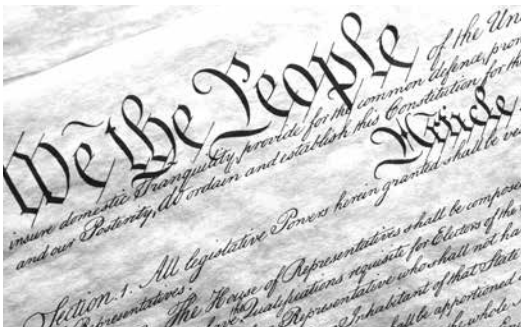 We the People of the Un
insure domestic Tranquility, provide for the common defence, prom
and our Posterity, do ordain and establish this Constitution for the
Article
Section. 1. All legislative Powers herein granted shall be ve
Representatives.
The House of Representatives shall be compose
Qualifications requisite for Electors of the
Representative who shall not ha
Inhabitant of that State
shall be apportioned
whole